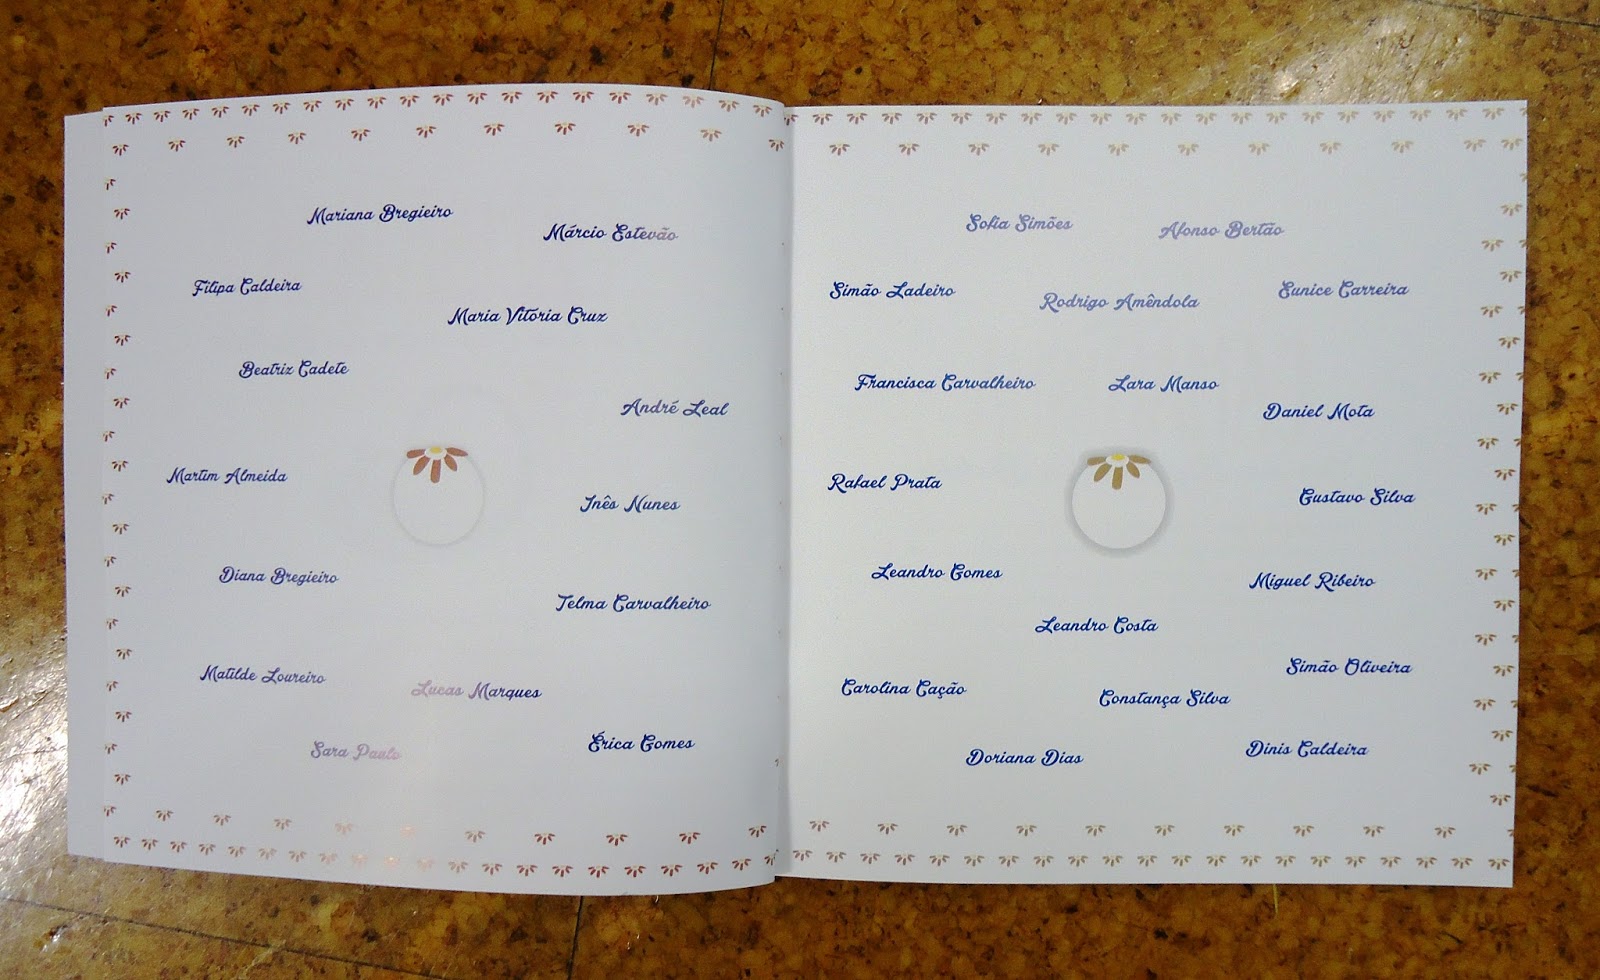 Mariana Bregieiro
Márcio Estevão
Filipa Caldeira
Maria Vitoria Cruz
Beatriz Cadete
André Leal
Martim Almeida
Inês Nunes
Diana Bregieiro
Telma Carvalheiro
Matilde Loureiro
Lucas Marques
Sara Paulo
Érica Gomes
Sofia Simões
Afonso Bertão
Simão Ladeiro
Rodrigo Amêndola
Eunice Carreira
Francisca Carvalheiro
Lara Manso
Daniel Mota
Rafael Prata
Gustavo Silva
Leandro Gomes
Miguel Ribeiro
Leandro Costa
Simão Oliveira
Carolina Cação
Constança Silva
Doriana Dias
Dinis Caldeira